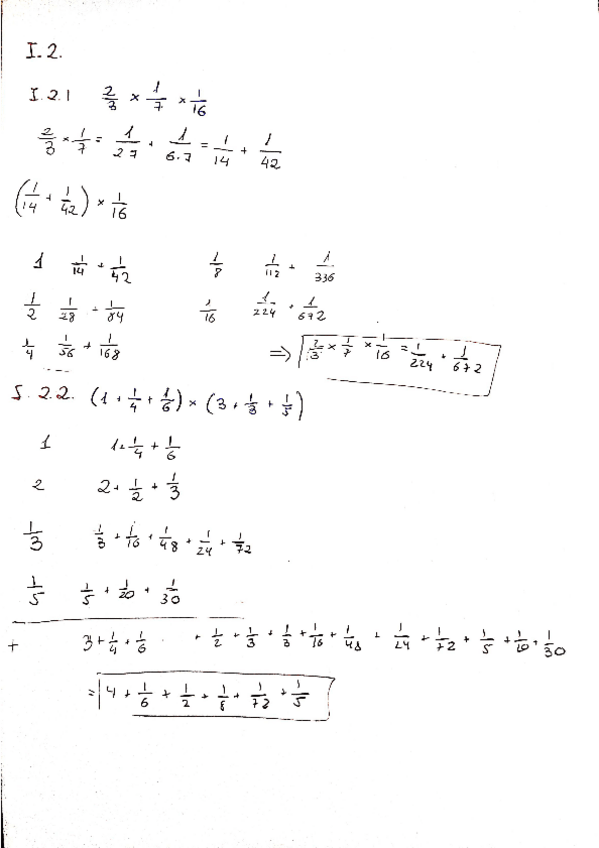 I.2.
I.2.1 2/3 × 1/7 × 1/16
2/3 × 1/7 = 1/27 + 1/6·7 = 1/14 + 1/42
(1/14 + 1/42) × 1/16
1 1/14 + 1/42 1/8 1/112 + 1/336
1/2 1/28 + 1/84 1/16 1/224 + 1/672
1/4 1/56 + 1/168 ⇒ 2/3 × 1/7 × 1/16 = 1/224 + 1/672
I.2.2. (1 + 1/4 + 1/6) × (3 + 1/3 + 1/5)
1 1+ 1/4 + 1/6
2 2+ 1/2 + 1/3
1/3 1/3 + 1/16 + 1/48 + 1/24 + 1/72
1/5 1/5 + 1/20 + 1/30
+ 3 + 1/4 + 1/6 + 1/2 + 1/3 + 1/3 + 1/16 + 1/48 + 1/24 + 1/72 + 1/5 + 1/20 + 1/30
= 4 + 1/6 + 1/2 + 1/8 + 1/72 + 1/5